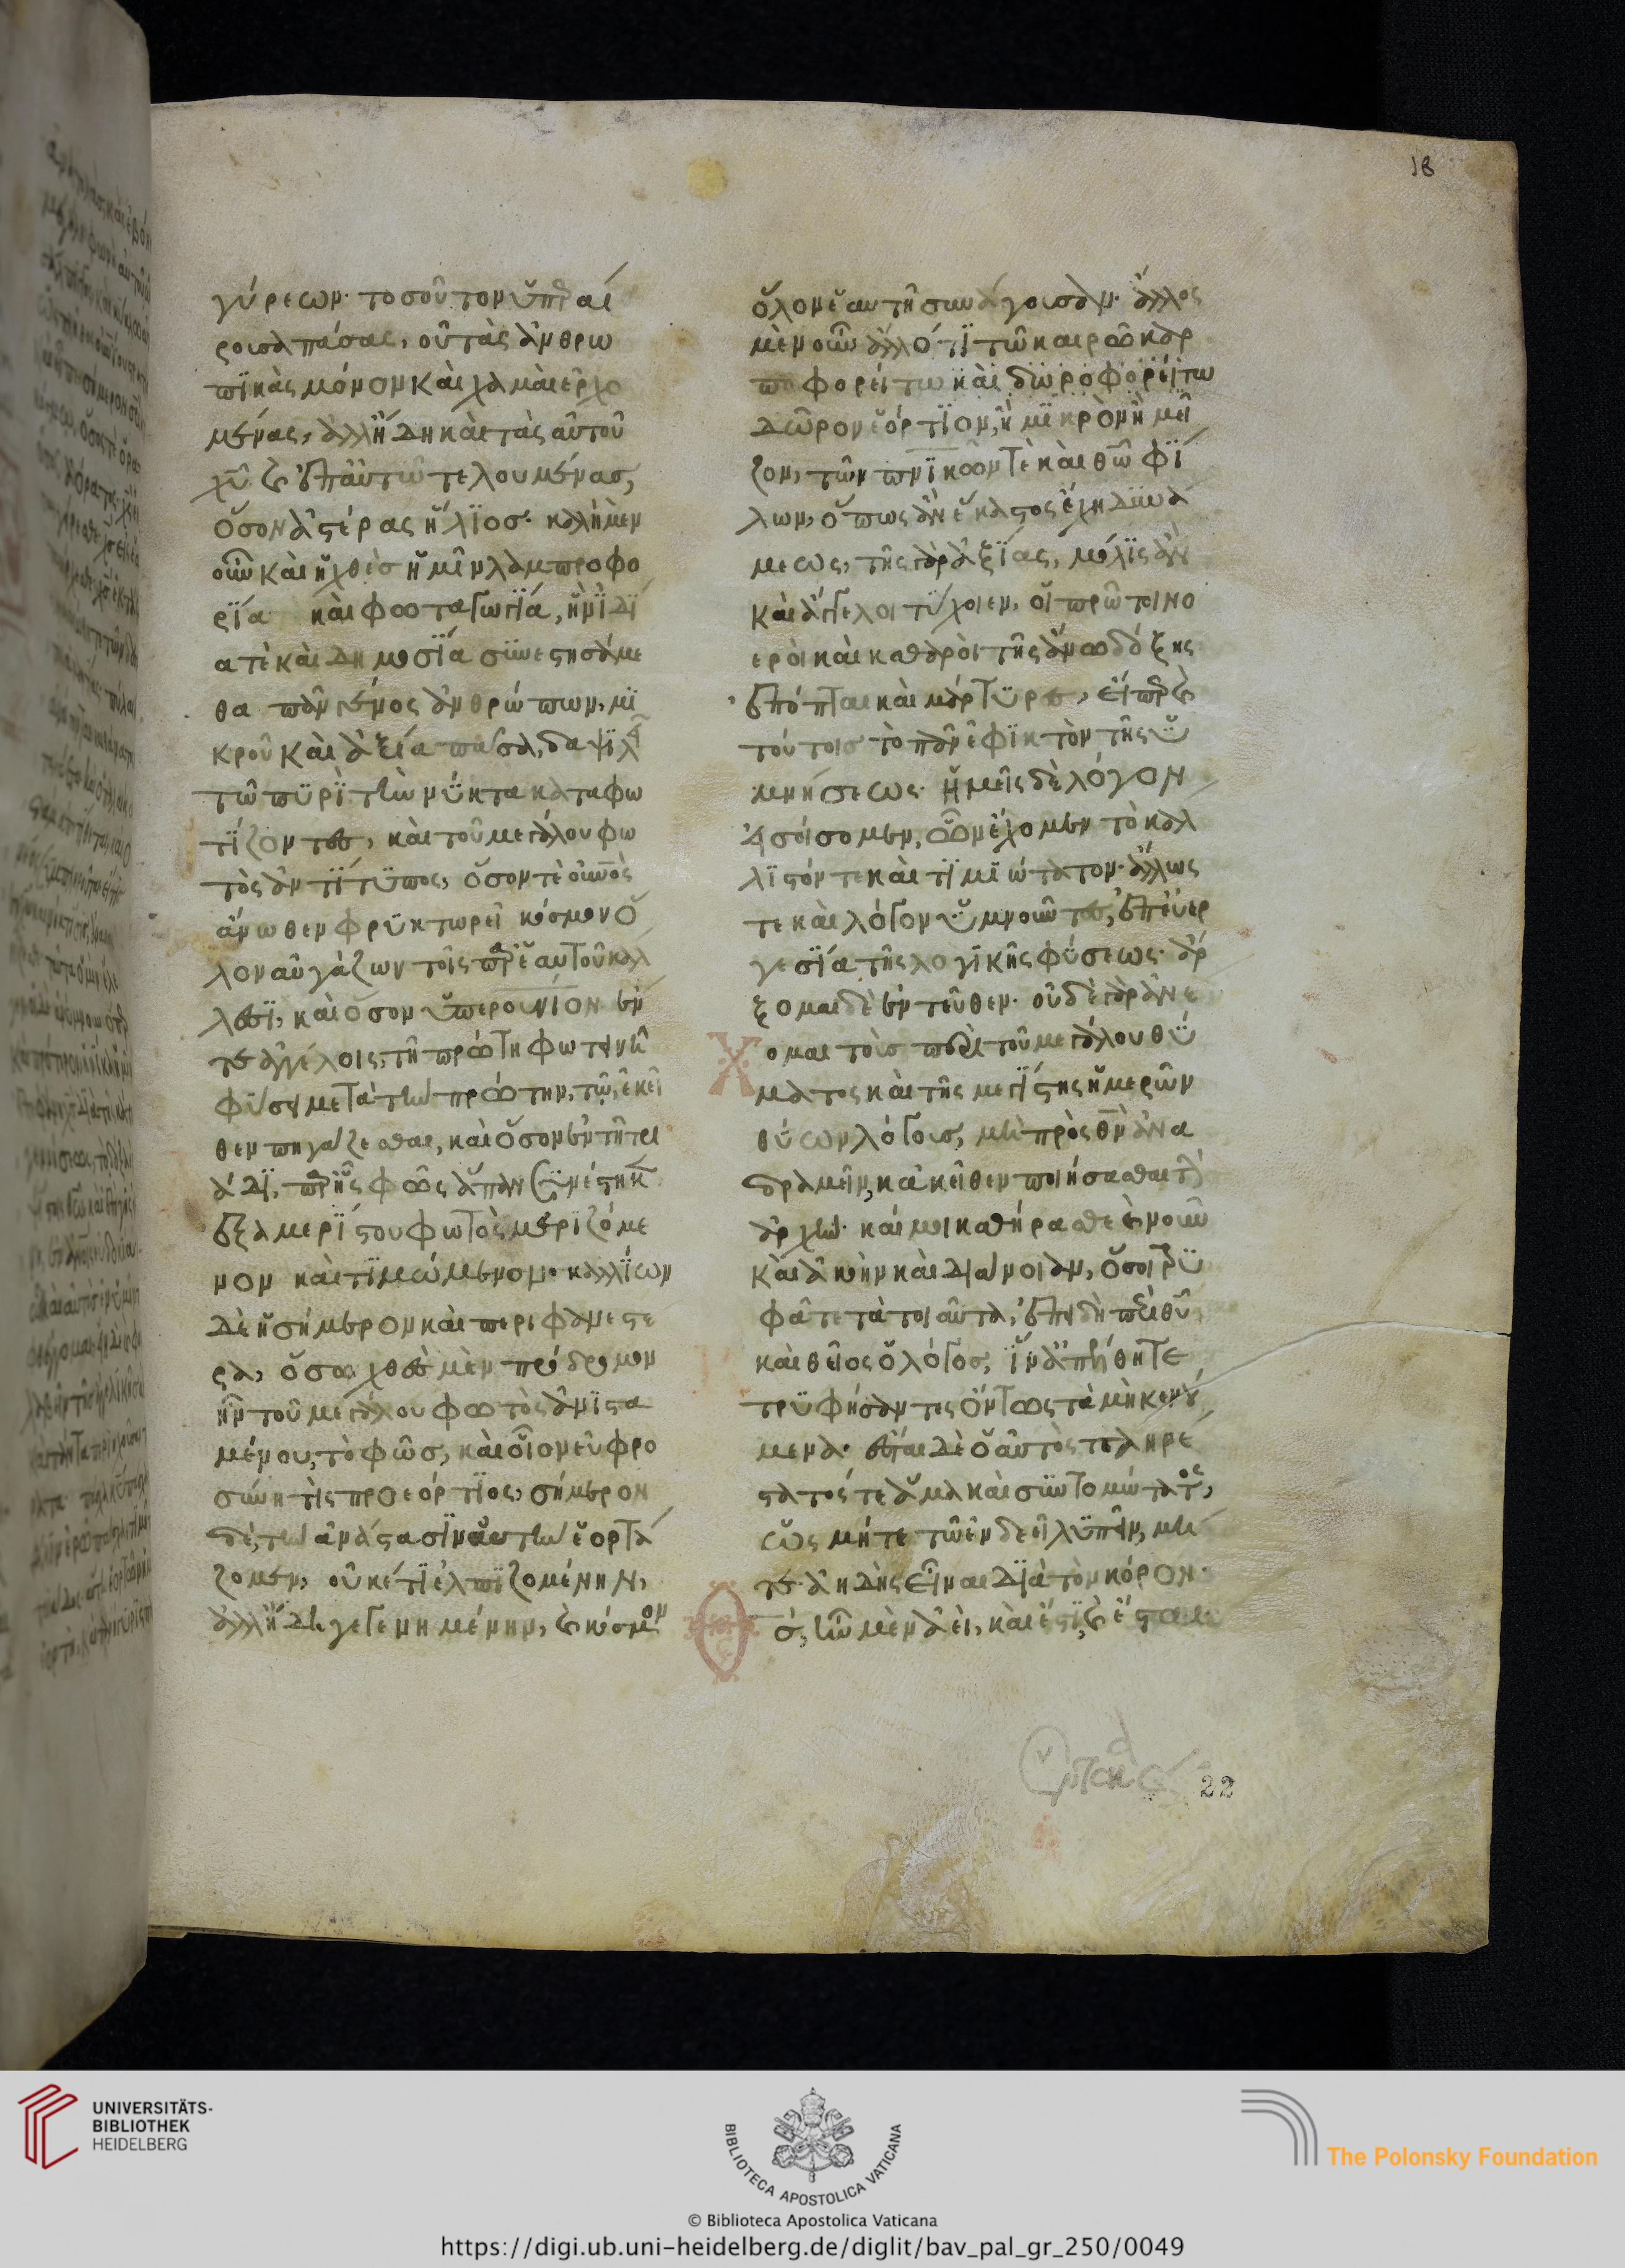 18
γύρεων· τοσοῦτον ὑπεραί
ρουσα πάσας, οὐ τὰς ἀνθρω
πικὰς μόνον καὶ χαμαὶ ἐρχο
μένας, ἀλλ' ἤδη καὶ τὰς αὐτοῦ
χυ καὶ ἐπ' αὐτῶ τελουμένας,
ὅσον ἀστέρας ἥλιος· καλὴ μὲν
οὖν καὶ ἡ χθὲς ἡμῖν λαμπροφο
ρία καὶ φωταγωγία, ἣν ἰδί
α τὲ καὶ δημοσία συνεστησάμε
θα πᾶν γένος ἀνθρώπων, μι
κροῦ καὶ ἀξία πᾶσα, δαψιλεῖ
τῶ πυρὶ τὴν νύκτα καταφω
τίζοντες, καὶ τοῦ μεγάλου φω
τὸς ἀντίτυπος, ὅσον τὲ οὐνὸς
ἄνωθεν φρυκτωρεῖ κόσμον ὅ
λον αὐγάζων τοῖς παρ' ἑαυτοῦ κάλ
λεσι, καὶ ὅσον ὑπερουνιον ἐν
τε ἀγγέλοις, τῆ πρώτη φωτεινῆ
φύσει μετὰ τὴν πρώτην, τῶ ἐκεῖ
θεν πηγάζεσθαι, καὶ ὅσον ἐν τῆ τρι
άδι, παρ' ἧς φῶς ἅπαν συνέστηκεν
ἐξ ἀμερίστου φωτὸς μεριζόμε
νον καὶ τιμώμενον· καλλίων
δὲ ἡ σήμερον καὶ περιφανεστέ
ρα, ὅσω χθὲς μὲν πρόδρομον
ἦν τοῦ μεγάλου φωτὸς ἀνιστα
μένου, τὸ φῶς, καὶ οἷον εὐφρο
σύνη τὶς προεόρτιος, σήμερον
δὲ, τὴν ἀνάστασιν αὐτὴν ἑορτά
ζομεν, οὐκέτι ἐλπιζομένην,
ἀλλ' ἤδη γεγενημένην, καὶ κόσμον
ὅλον ἑαυτῆ συνάγουσαν· ἄλλος
μὲν οὖν ἄλλό τι τῶ καιρῶ καρ
ποφορείτω καὶ δωροφορείτω
δῶρον ἑόρτιον, ἢ μικρὸν ἢ μεῖ
ζον, τῶν πνικῶν τὲ καὶ θω φί
λων, ὅπως ἂν ἕκαστος ἔχη δυνά
μεως, τῆς γὰρ ἀξίας, μόλις ἂν
καὶ ἄγγελοι τύχοιεν, οἱ πρῶτοι νο
εροὶ καὶ καθαροὶ τῆς ἄνω δόξης
ἐπόπται καὶ μάρτυρες, εἴπερ καὶ
τούτοις τὸ πᾶν ἐφικτὸν τῆς ὑ
μνήσεως· ἡμεῖς δὲ λόγον
εἰσοίσομεν, ὧν ἔχομεν τὸ κάλ
λιστόν τε καὶ τιμιώτατον· ἄλλως
τε καὶ λόγον ὑμνοῦντες, ἐπ' εὐερ
γεσία τῆς λογικῆς φύσεως· ἄρ
ξομαι δὲ ἐντεῦθεν· οὐδὲ γὰρ ἀνέ
χομαι τοῖς περὶ τοῦ μεγάλου θύ
ματος καὶ τῆς μεγίστης ἡμερῶν
θύων λόγοις, μὴ πρὸς θν ἀνα
δραμεῖν, κἀκεῖθεν ποιήσασθαι τὴν
ἀρχήν· καί μοι καθήρασθε καὶ νοῦν
καὶ ἀκοὴν καὶ διάνοιαν, ὅσοι τρυ
φᾶτε τὰ τοιαῦτα, ἐπειδὴ περὶ θυ
καὶ θεῖος ὁ λόγος, ἵν' ἀπέλθητε
τρυφήσαντες ὄντως τὰ μὴ κενού
μενα· ἔσται δὲ ὁ αὐτὸς πληρέ
στατός τε ἅμα καὶ συντομώτατος,
ὡς μήτε τῶ ἐνδεεῖ λυπεῖν, μή
τε ἀηδὴς εἶναι διὰ τὸν κόρον·
Θς, ἦν μὲν ἀεὶ, καὶ ἔστι, καὶ ἔσται
22
UNIVERSITÄTS-
BIBLIOTHEK
HEIDELBERG
BIBLIOTECA APOSTOLICA VATICANA
The Polonsky Foundation
© Biblioteca Apostolica Vaticana
https://digi.ub.uni-heidelberg.de/diglit/bav_pal_gr_250/0049